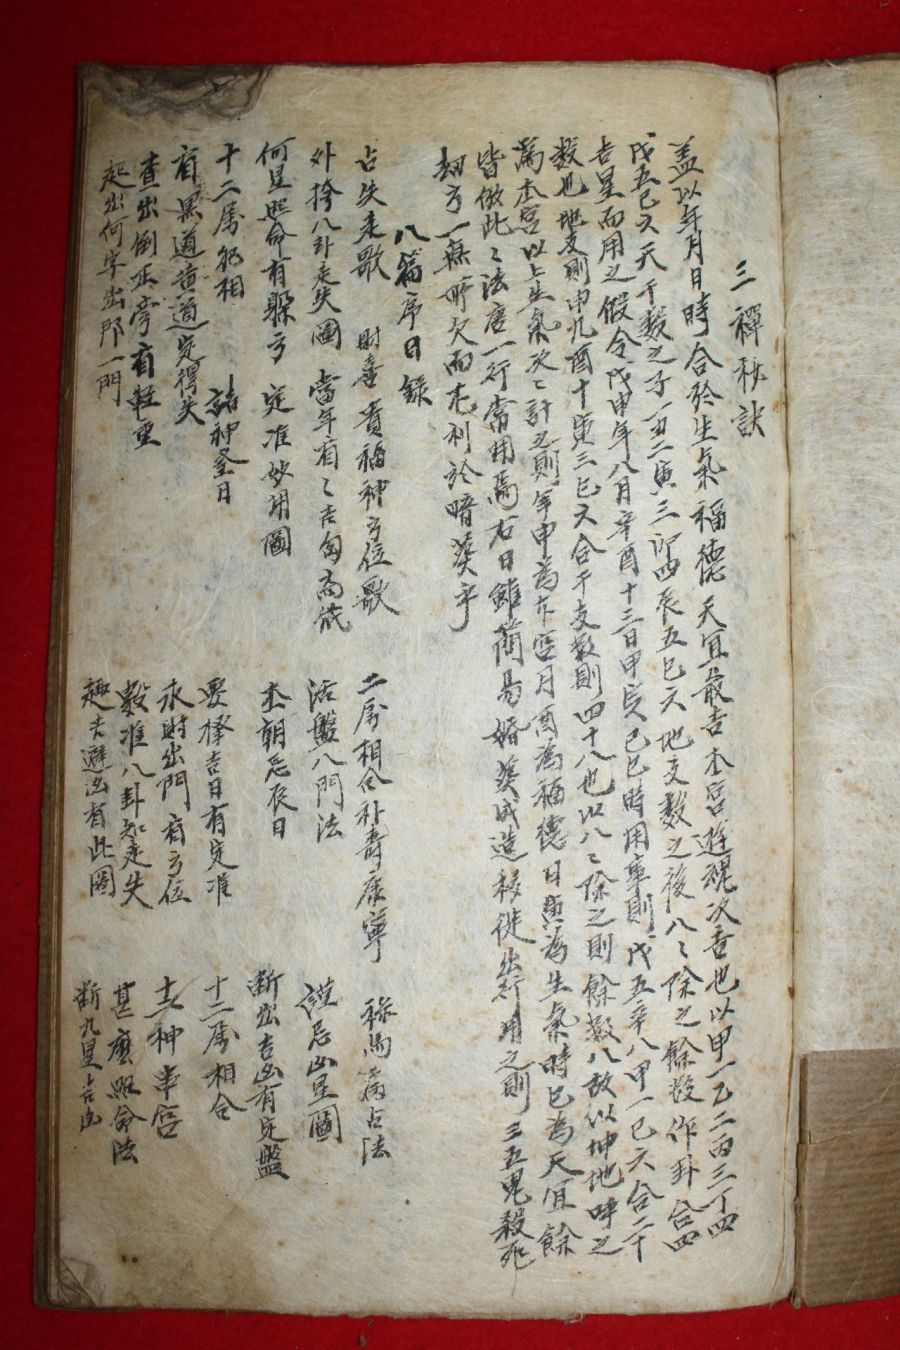 三禪秘訣
盖以年月日時合於生氣福德天宜最吉本宮遊魂次吉也以甲一乙二丙三丁四
戊五己六天干數之子一丑二寅三卯四辰五巳六地支數之後八〻除之餘數作卦合四
吉星而用之假令戊申年八月辛酉十三日甲寅己巳時用事則戊五辛八甲一己六合二十
數也地支則申九酉十寅三巳六合干支數則四十八也以八〻除之則餘數八故以坤地
爲本宮以上生氣次〻計之則年申為本宮月酉為福德日寅為生氣時巳為天宜餘
皆倣此〻法唐一行常用焉右日雖簡易婚葬成造移徙出行用之則三五鬼殺死
劫方一無所欠而尤利於暗葬乎
八篇序目錄
占失走歌 財喜貴福神方位歌 二房相合补壽康寧 祿馬 占法
外揜八卦走失圖 當年有〻吉匈高低 活盤八門法 謹忌凶星圖
何星照命有躱方 定准妙用圖 本朝忌辰日 斷出吉凶有定盤
十二属犯相 諸神圣日 要擇吉日有定准 十二属相合
有黑道黃道定得失 永財出門有方位 十二神事宮
查出倒正旁有輕重 數准八卦知走失 甚麽照命法
起出何字出那一門 趣吉避凶有此圖 斷九星吉凶